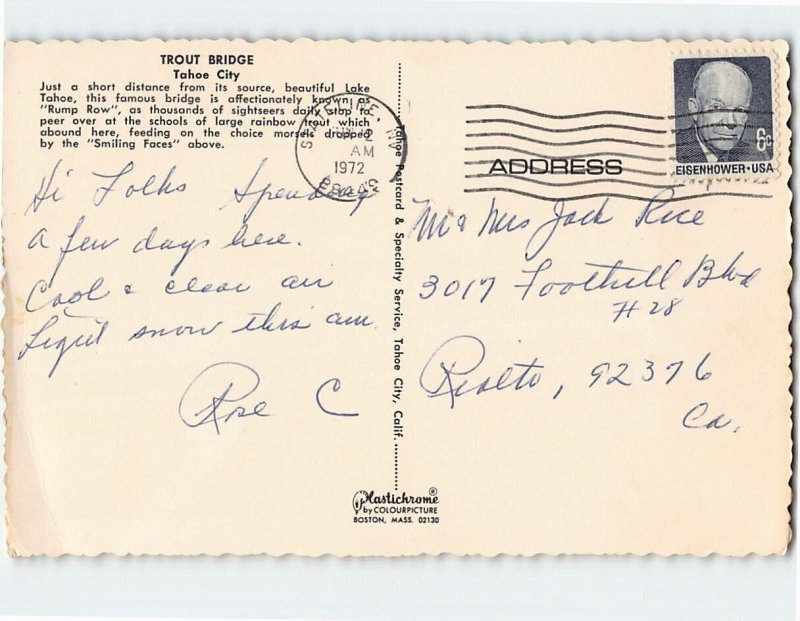 TROUT BRIDGE
Tahoe City
Just a short distance from its source, beautiful Lake
Tahoe, this famous bridge is affectionately known as
"Rump Row", as thousands of sightseers daily stop to
peer over at the schools of large rainbow trout which
abound here, feeding on the choice morsels dropped
by the "Smiling Faces" above.
Hi Folks Spending
a few days here.
Cool & clear air
Light snow this am
Rose C
Tahoe Postcard & Specialty Service, Tahoe City, Calif.
Plastichrome®
by COLOURPICTURE
BOSTON, MASS. 02130
STATELINE, NV
2
AM
1972
89449
6c
EISENHOWER·USA
ADDRESS
Mr & Mrs Jack Rice
3017 Foothill Blvd
#28
Rialto, 92376
Ca.